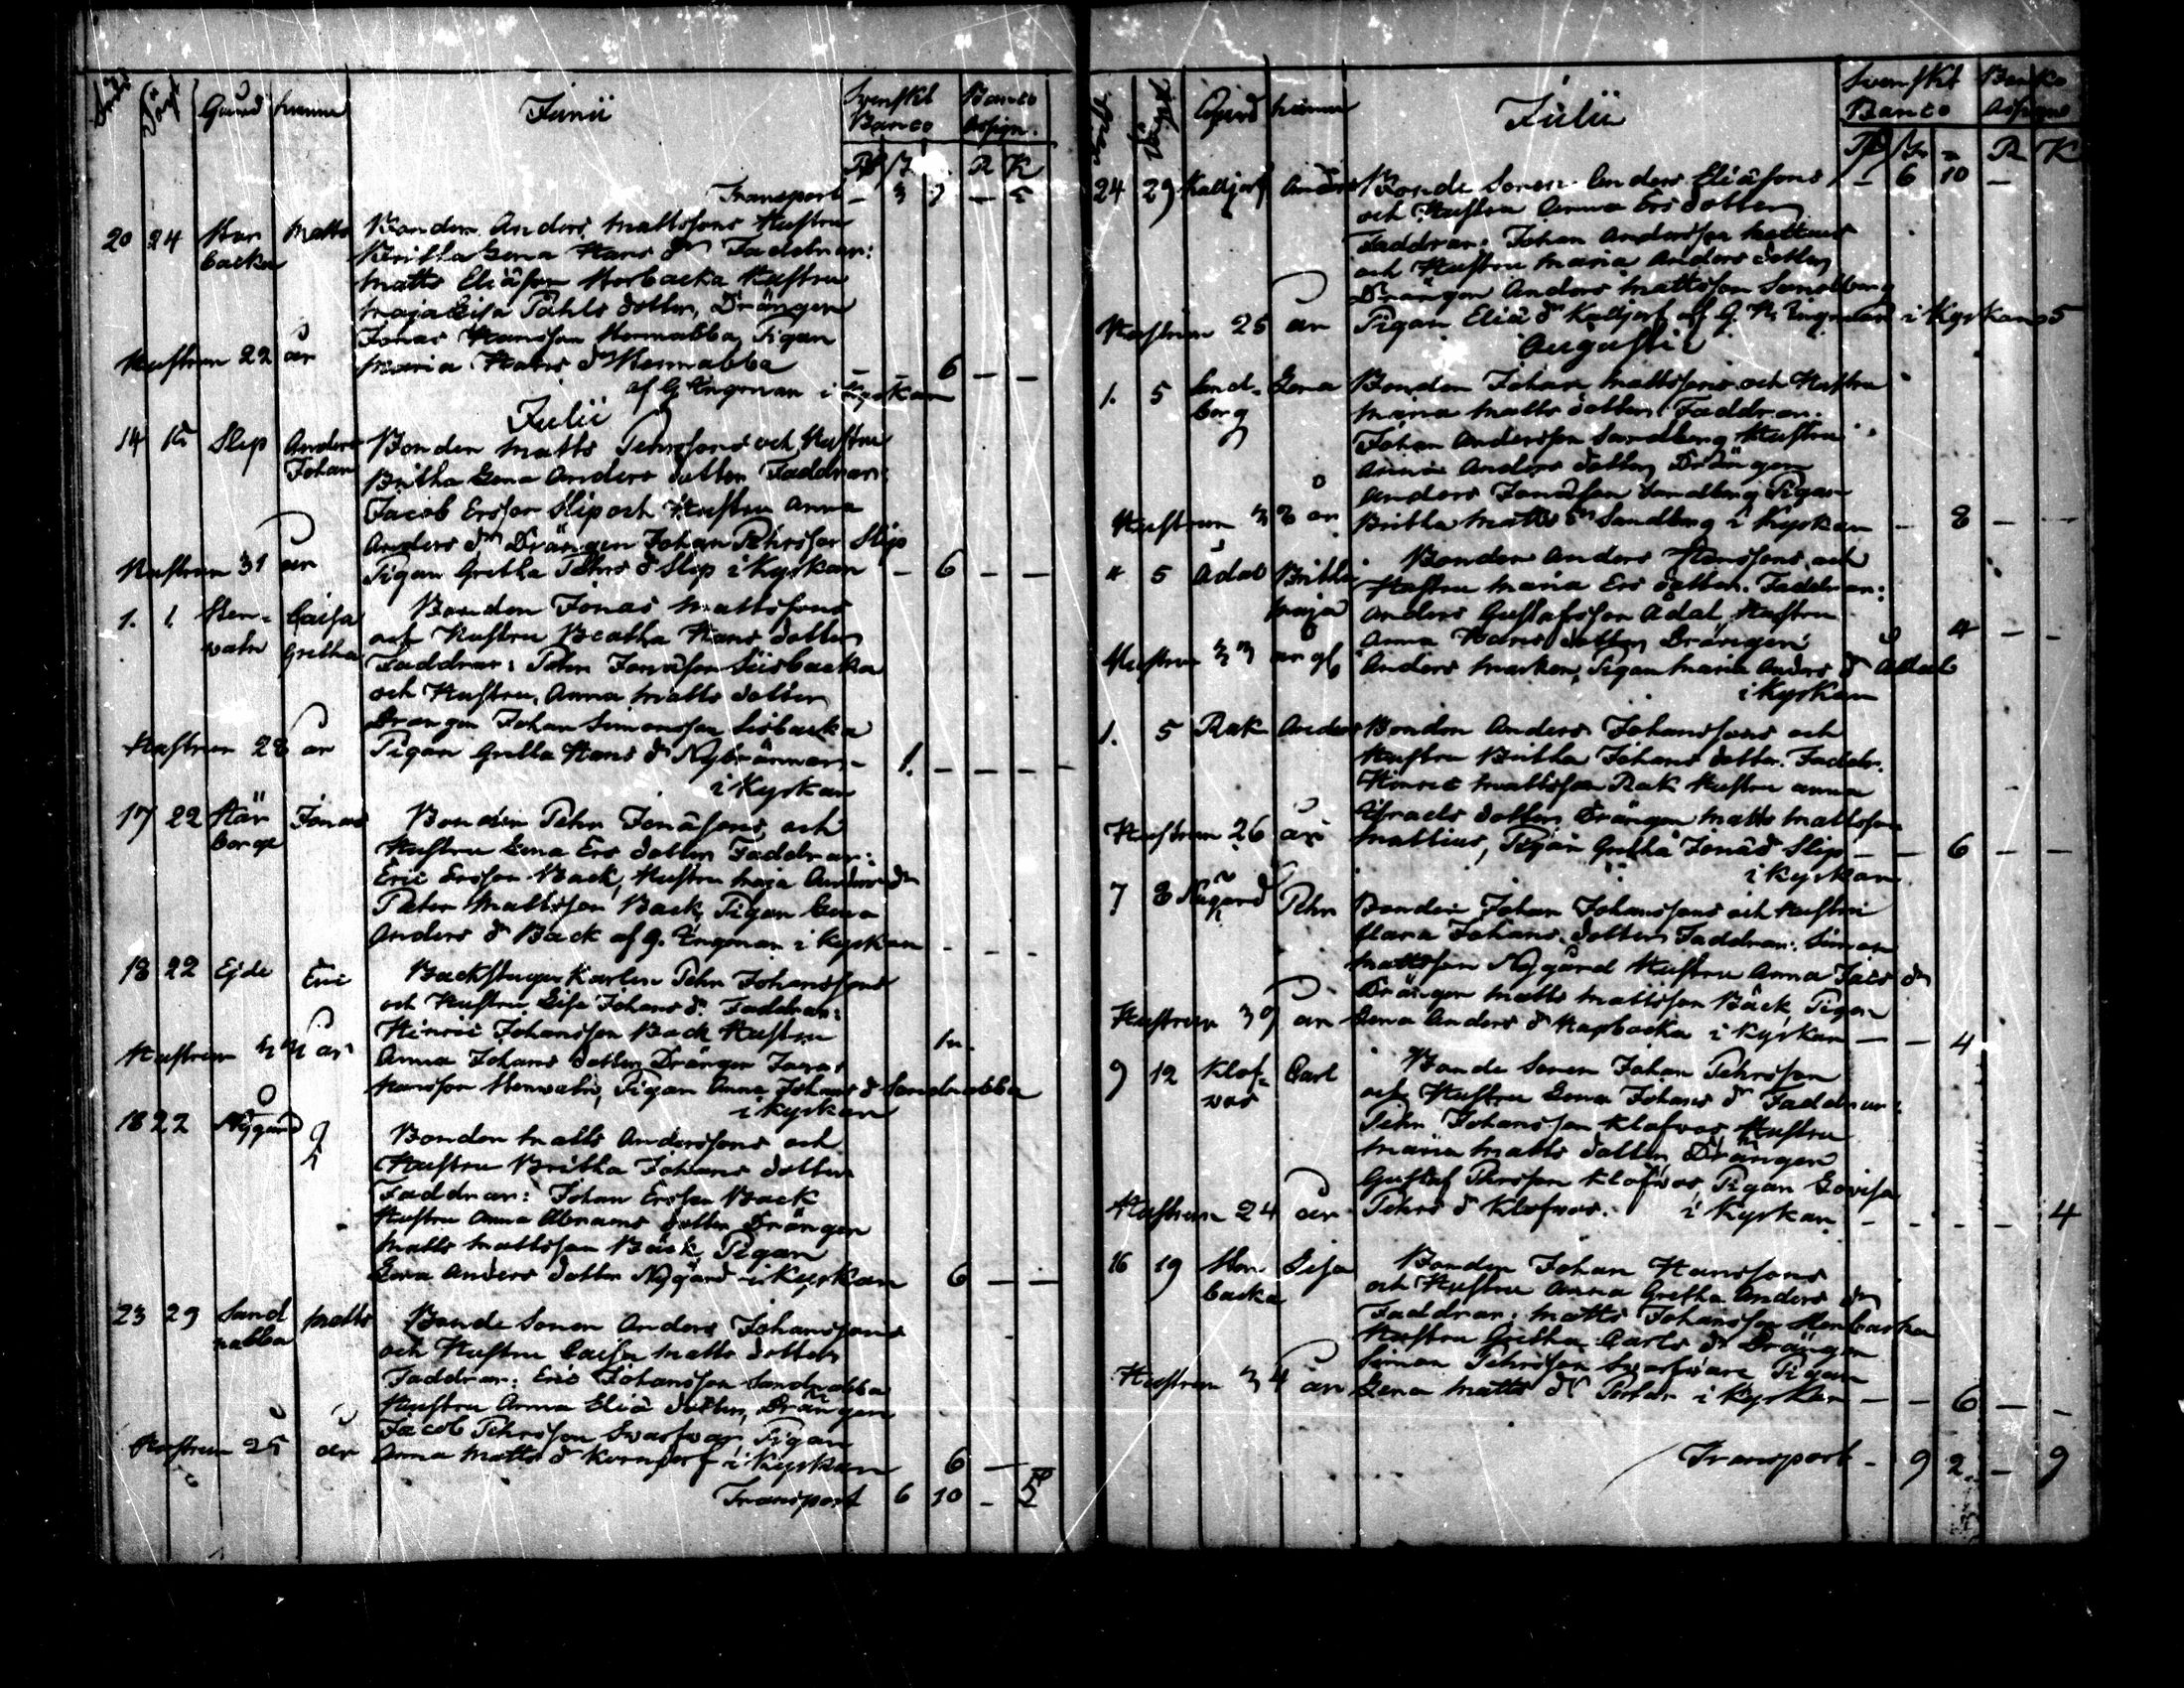 Gård Namn Junii Svenskt Banco Banco Assign.
R K
Transport - 3 7 -
20 24 Stor backa Matts Bonden Anders Mattssons Hustru
Britha Lena Hans dr Faddrar:
Matts Eliäson Storbacka Hustru
Maja Lisa Påhls dotter, Drängen
Jonas Hansson Stornabba Pigan
Hustrun 22 år Maria Hans d Stornabba - 6 - -
af G Engman i Kyrkan
Julii
14 15 Slip Anders Johan Bonden Matts Pehrssons och Hustru
Britha Lena Anders dotter Faddrar:
Jacob Ersson Slip och Hustru Anna
Anders dr Drängen Johan Pehrsson Slip
Hustrun 31 år Pigan Gretha Pehrs d Slip i Kyrkan - 6 - -
1. 1. Sten- Caisa Bonden Jonas Mattssons
Gretha och Hustru Beatha Hans dotter
Faddrar: Pehr Jonasson Lisbacka
och Hustru Anna Matts dotter
Drängen Johan Simonsson Lisbacka
Hustrun 28 år Pigan Gretha Hans dr Nybrännars - 1. - - - -
i Kyrkan
17 22 Här berge Jonas Bonden Pehr Jonäsons och
Hustru Lena Ers dotter Faddrar:
Eric Ersson Back, Hustru Maja Anders dr
Peter Mattsson Back, Pigan Lena
Anders dr Back af G. Engman i Kyrkan - - - -
18 22 Ejde Eric Backstugu Karlen Pehr Johanssons
och Hustru Lisa Johans dr. Faddrar:
Henric Johansson Back Hustru
Hustrun år Anna Johans dotter Drängen Jonas
Hansson Pigan Anna Johans d Sandnabba
i Kyrkan
18 22 Nygård Bonden Matts Anderssons och
Hustru Britha Johans dotter
Faddrar: Johan Ersson Back
Hustru Anna Abrams dotter Drängen
Matts Mattsson Bäck, Pigan
Lena Anders dotter Nygård i Kyrkan 6 - -
23 29 Sand nabba Matts Bonde Sonen Anders Johanssons
och Hustru Caisa Matts dotter
Faddrar: Eric Johansson Sandnabba
Hustru Anna Eliä dotter, Drängen
Jacob Pehrsson Pigan
Hustrun 25 år Anna Matts d Kornjerf i Kyrkan 6 -
Transport 6 10 - 5
Gård Namn Julii Svenskt Banco Banko Assign
R K
24 29 Kalljerf Anders Bonde Sonen Anders Eliäsons - 6 10 -
och Hustru Anna Ers dotter
Faddrar: Johan Andersson
och Hustru Maria Anders dotter
Drängen Anders Mattsson Sandberg
Hustrun 25 år Pigan Eliä dr Kalljerf af G. Engman i Kyrkan 5
Augusti
1. 5 Sand- berg Lena Bonden Johan Mattssons och Hustru
Maria Matts dotter. Faddrar:
Johan Andersson Sandberg Hustru
Anna Anders dotter, Drängen
Anders Jonäson Sandberg Pigan
Hustrun 38 år Britha Matts dr Sandberg i Kyrkan - 8 - -
4 5 Ådal Britha Maja Bonden Anders Hanssons och
Hustru Maria Ers dotter. Faddrar:
Anders Gustafsson Ådal, Hustru
Anna Hans dotter, Drängen 4 - -
Hustrun 33 år Anders Pigan Maria Anders d Ådal
i Kyrkan
1. 5 Rak Anders Bonden Anders Johanssons och
Hustru Britha Johans dotter. Faddr.
Henric Mattsson Rak Hustru Anna
Israels dotter, Drängen Matts Mattsson
Hustrun 26 år Mattius, Pigan Gretha Jonä d Slip - - 6 - -
i Kyrkan
7 8 Nygård Pehr Bonden Johan Johanssons och Hustru
Clara Johans. dotter Faddrar: Simon
Mattsson Nygård Hustru Anna Jacs dr
Drängen Matts Mattsson Bäck, Pigan
Hustrun 39 år Lena Anders d i Kyrkan - - 4
9 12 Klof- vas Carl Bonde Sonen Johan Pehrsson
och Hustru Lena Johans dr Faddrar:
Pehr Johansson Klofvas Hustru
Maria Matts dotter, Drängen
Gustaf Pehrsson Klofvas Pigan Lovisa
Hustrun 24 år Pehrs d Klofvas. i Kyrkan - - - - 4
16 19 Sten backa Lisa Bonden Johan Hanssons
och Hustru Anna Gretha Anders dr
Faddrar: Matts Johansson Stenbacka
Hustru Gretha Carls dr Drängen
Simon Pehrsson Pigan
Hustrun 34 år Lena Matts dr i Kyrkan - - 6 - -
Transport - 9 2 - 9